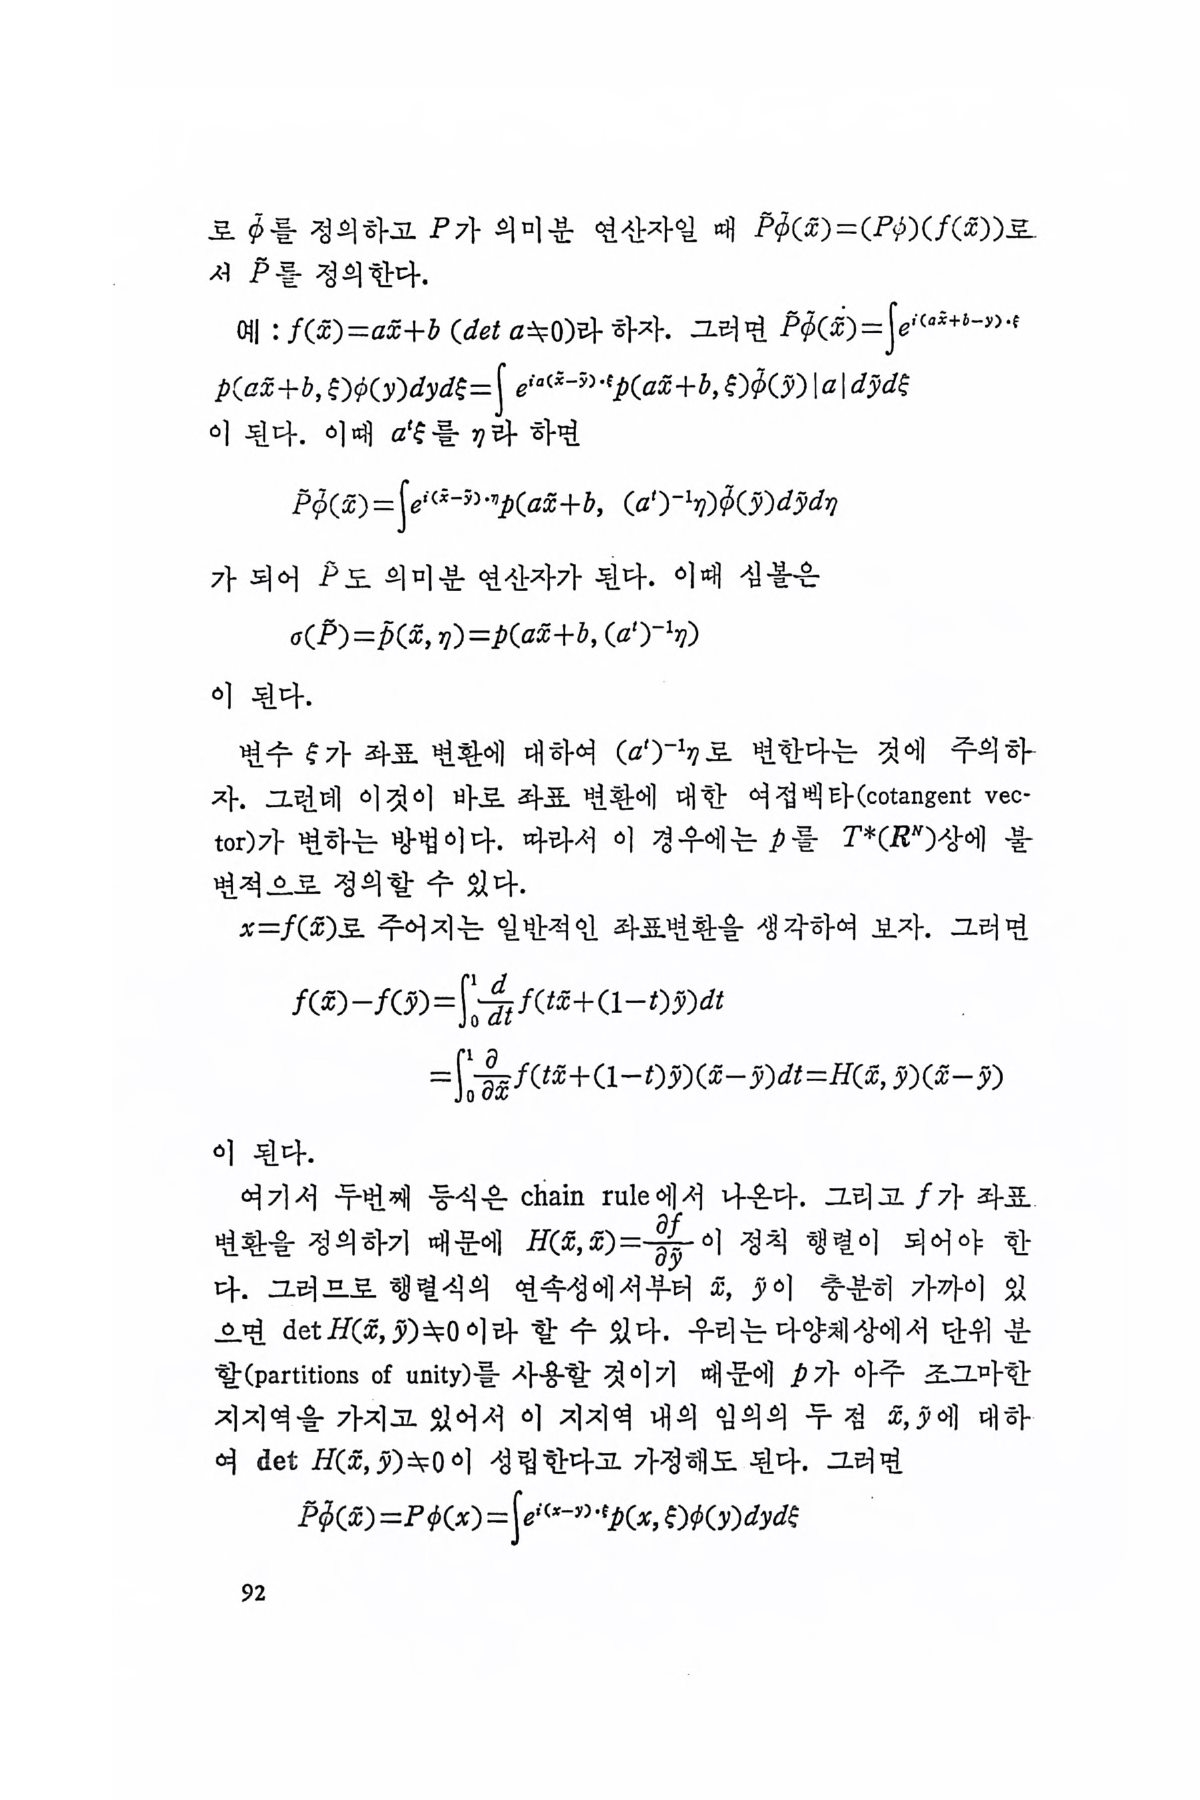 로 φ̃를 정의하고 P가 의미분 연산자일 때 P̃φ̃(x̃)=(Pφ)(f(x̃))로
서 P̃를 정의한다.
예 : f(x̃)=ax̃+b (det a≒0)라 하자. 그러면 P̃φ̃(x̃)=∫e^{i(ax̃+b−y)·ξ}
p(ax̃+b, ξ)φ(y)dydξ=∫ e^{ia(x̃−ỹ)·ξ}p(ax̃+b, ξ)φ̃(ỹ)|a|dỹdξ
이 된다. 이때 aᵗξ를 η라 하면
P̃φ̃(x̃)=∫e^{i(x̃−ỹ)·η}p(ax̃+b, (aᵗ)⁻¹η)φ̃(ỹ)dỹdη
가 되어 P̃도 의미분 연산자가 된다. 이때 심볼은
σ(P̃)=p̃(x̃, η)=p(ax̃+b, (aᵗ)⁻¹η)
이 된다.
변수 ξ가 좌표 변환에 대하여 (aᵗ)⁻¹η로 변한다는 것에 주의하
자. 그런데 이것이 바로 좌표 변환에 대한 여접벡타(cotangent vec-
tor)가 변하는 방법이다. 따라서 이 경우에는 p를 T*(Rᴺ)상에 불
변적으로 정의할 수 있다.
x=f(x̃)로 주어지는 일반적인 좌표변환을 생각하여 보자. 그러면
f(x̃)−f(ỹ)=∫₀¹ d/dt f(tx̃+(1−t)ỹ)dt
=∫₀¹ ∂/∂x̃ f(tx̃+(1−t)ỹ)(x̃−ỹ)dt=H(x̃, ỹ)(x̃−ỹ)
이 된다.
여기서 두번째 등식은 chain rule에서 나온다. 그리고 f가 좌표
변환을 정의하기 때문에 H(x̃, x̃)=∂f/∂ỹ이 정칙 행렬이 되어야 한
다. 그러므로 행렬식의 연속성에서부터 x̃, ỹ이 충분히 가까이 있
으면 det H(x̃, ỹ)≒0이라 할 수 있다. 우리는 다양체상에서 단위 분
할(partitions of unity)를 사용할 것이기 때문에 p가 아주 조그마한
지지역을 가지고 있어서 이 지지역 내의 임의의 두 점 x̃, ỹ에 대하
여 det H(x̃, ỹ)≒0이 성립한다고 가정해도 된다. 그러면
P̃φ̃(x̃)=Pφ(x)=∫e^{i(x−y)·ξ}p(x, ξ)φ(y)dydξ
92